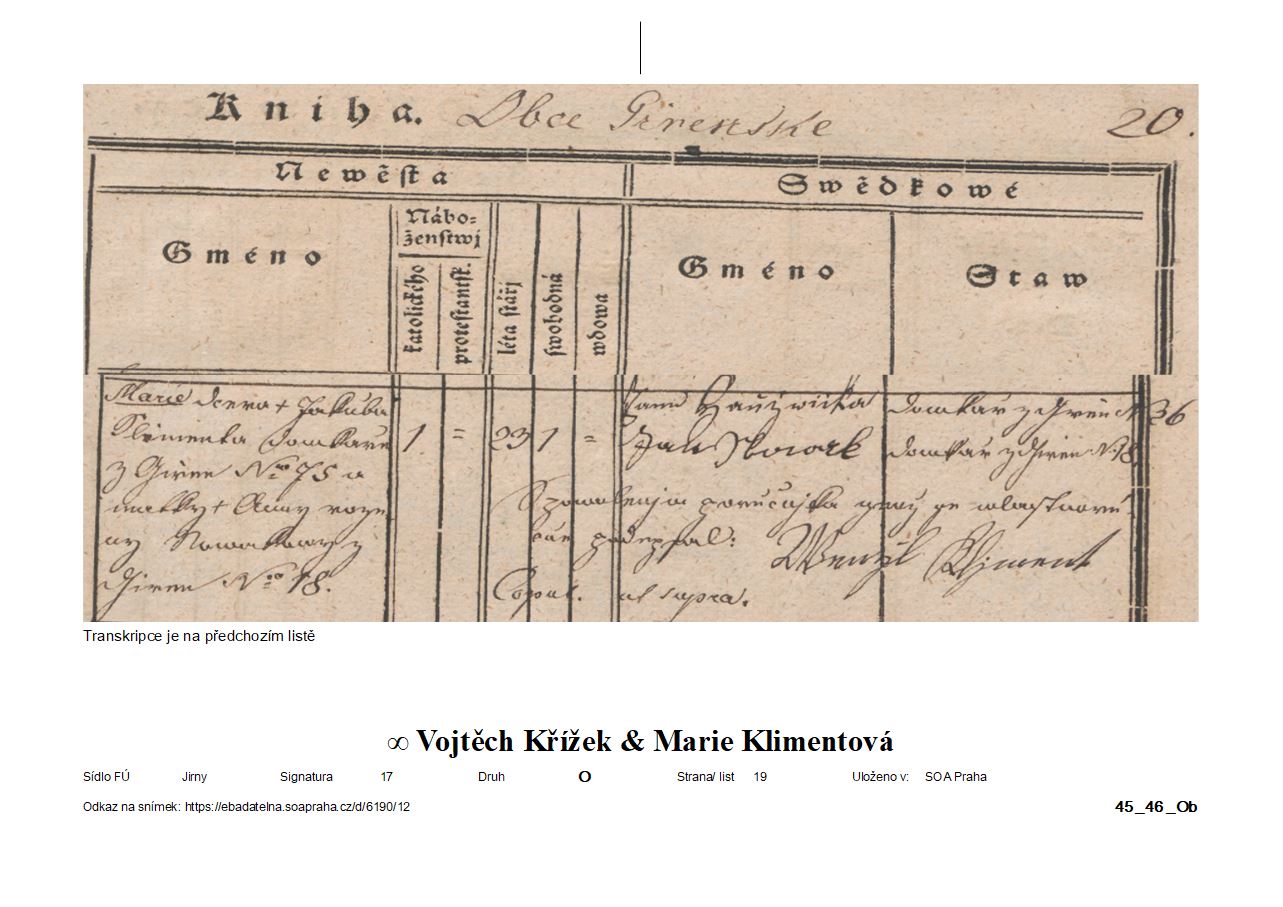 Kniha. Obce Girenske 20.
Newěsta
Swědkowé
Gméno
Nábo-
ženstwj
katolického
protestantsk.
léta stářj
swobodná
wdowa
Gméno
Staw
Marie dcera + Jakuba
Klimenta domkaře
z Giren Nro 75 a
matky + Anny roze
ny Nowakowy z
Giren Nro 18.
1. = 23 1 =
domkař z Giren N 36
Jan Nowak domkař z Giren N. 18.
S powolenjm poručnjka genž se wlastnoru
čně podepsal: Wenzl Kliment
Copul. ut supra.
Transkripce je na předchozím listě
∞ Vojtěch Křížek & Marie Klimentová
Sídlo FÚ Jirny Signatura 17 Druh O Strana/ list 19 Uloženo v: SOA Praha
Odkaz na snímek: https://ebadatelna.soapraha.cz/d/6190/12 45_46_Ob